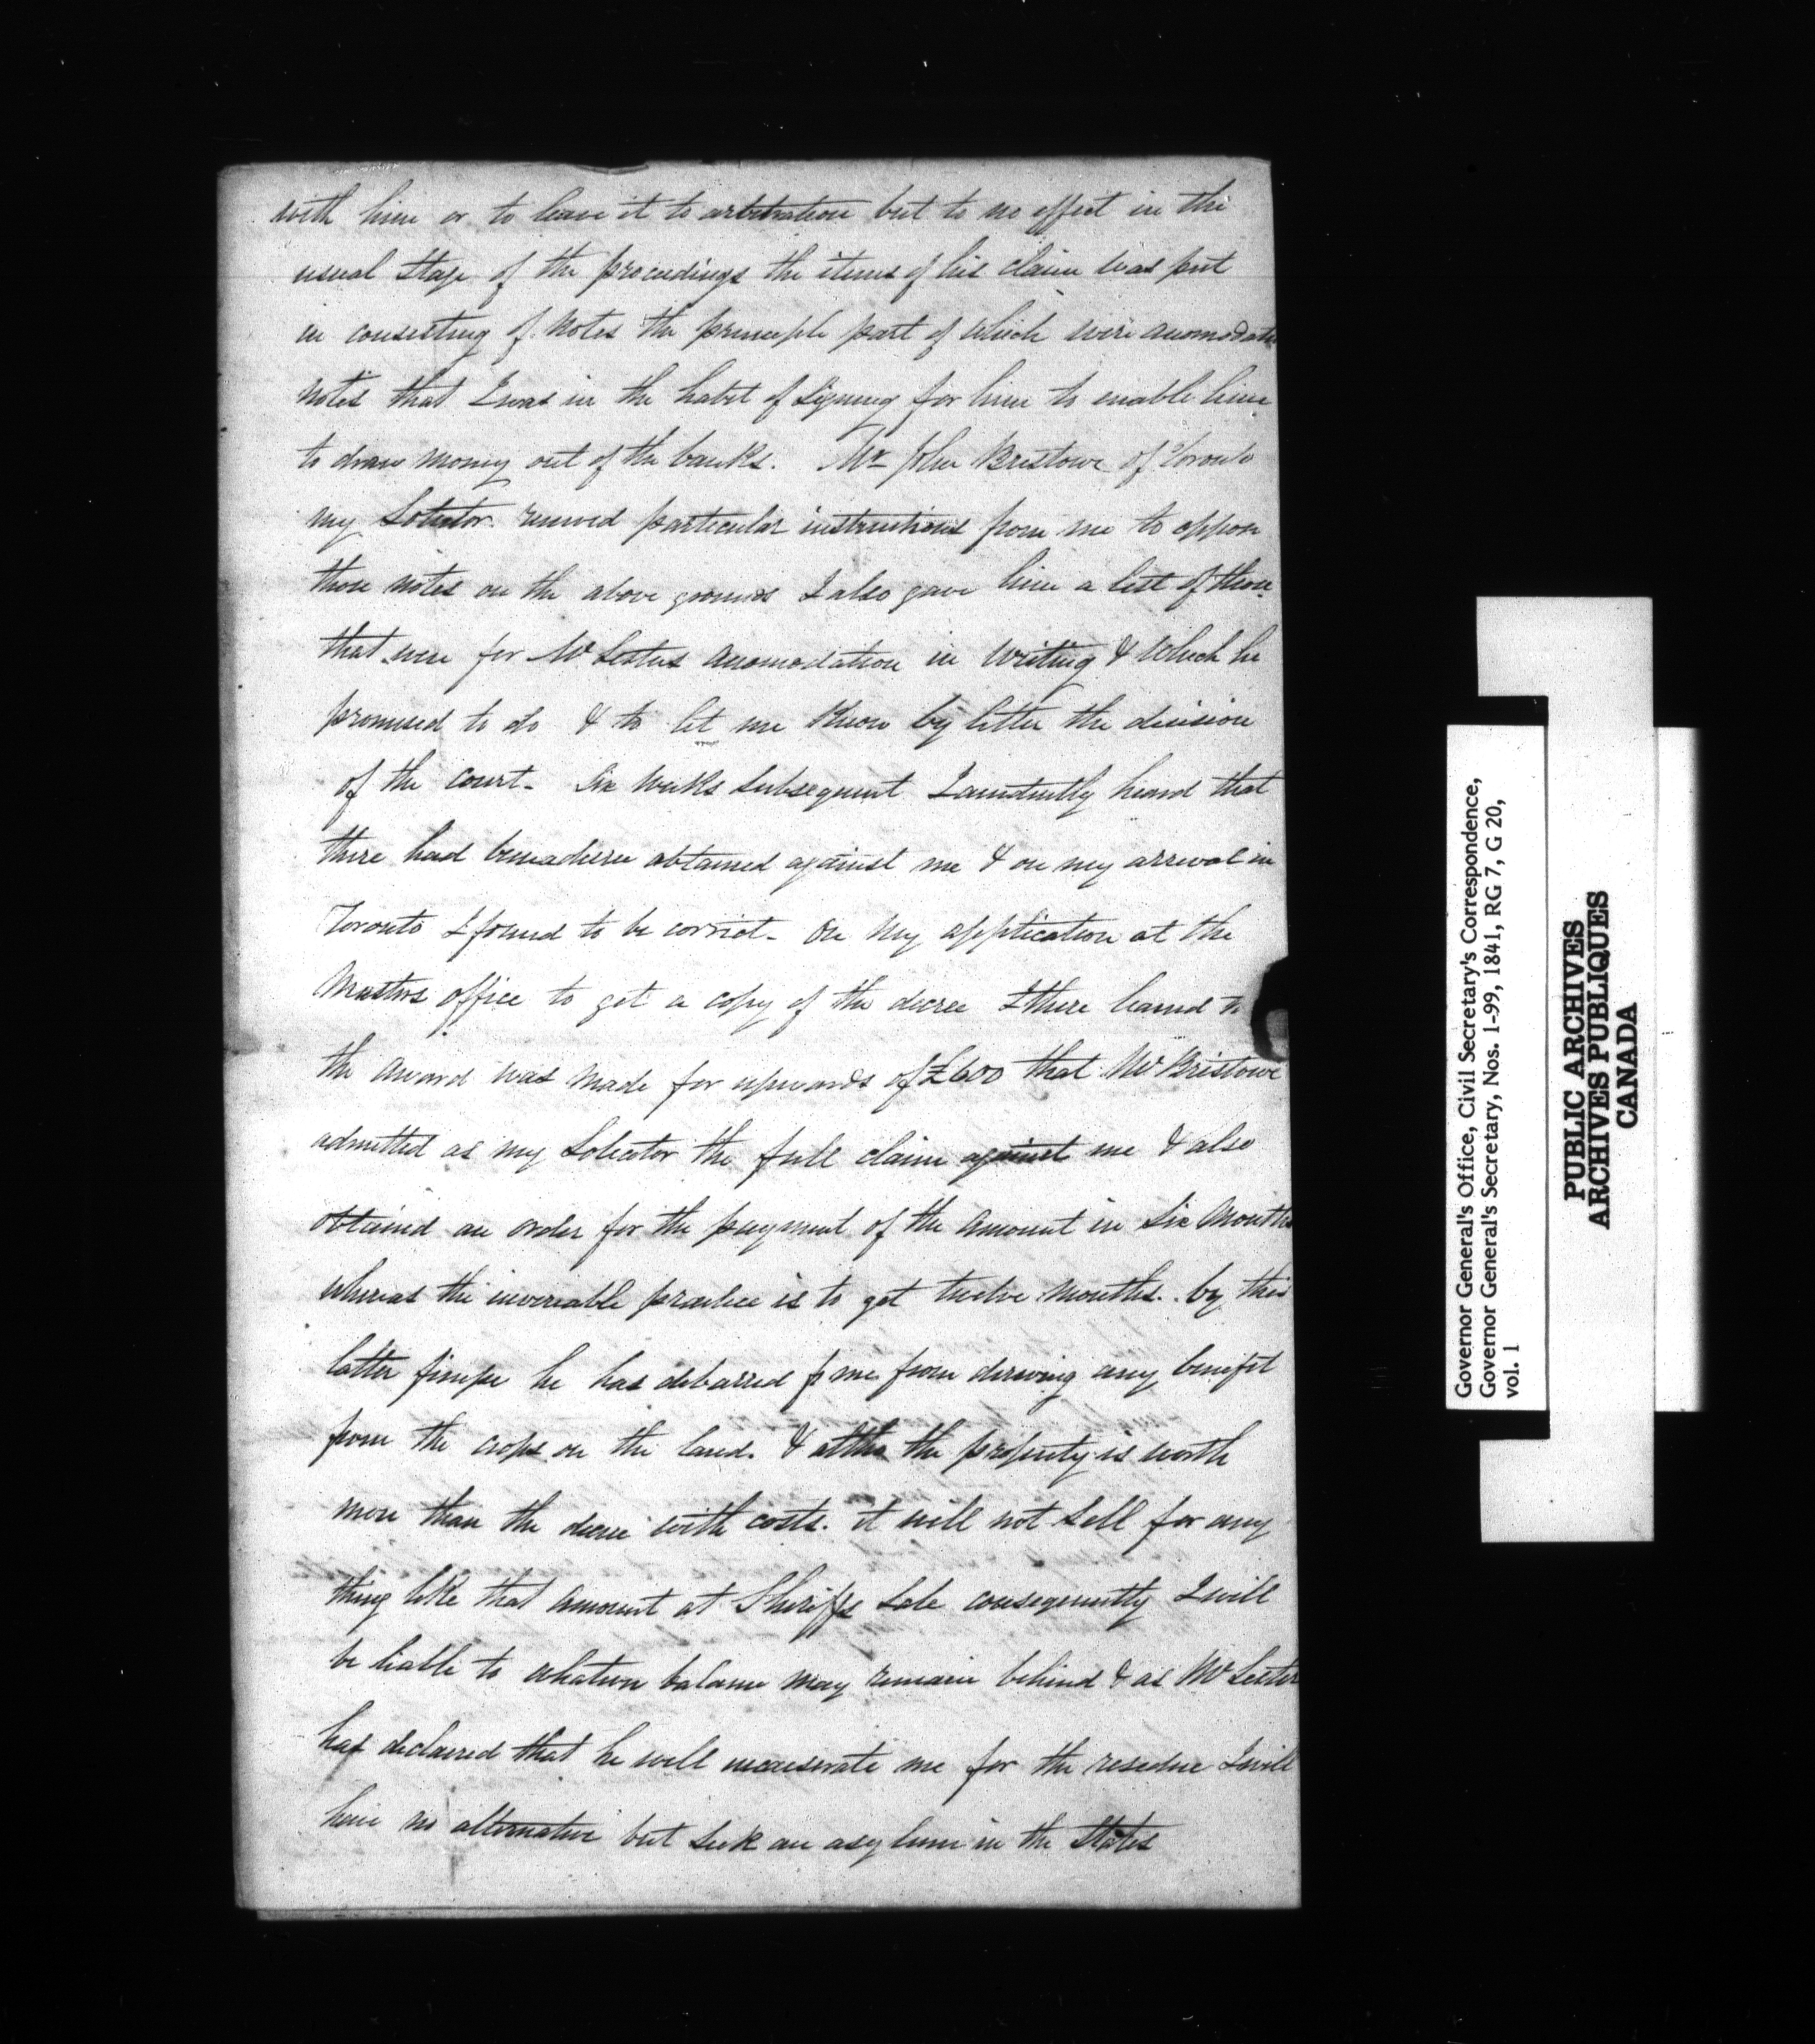 with him or to leave it to arbitration but to no effect in the
usual stage of the proceedings the items of his claim was put
in consisting of notes the principle part of which were anomodation
notes that I was in the habit of signing for him to enable him
to draw money out of the banks. Mr John Bristowe of Toronto
my Solicitor received particular instructions from me to oppose
those notes on the above grounds I also gave him a list of those
that were for Mr Lesters anomodation in writing & which he
promised to do & to let me know by letter the decision
of the court. Six weeks subsequent I heard that
there had been a decree obtained against me & on my arrival in
Toronto I found to be correct. On my application at the
Masters office to get a copy of the decree I there learned
the award was made for upwards of £600 that Mr Bristowe
admitted as my Solicitor the full claim against me & also
obtained an order for the payment of the amount in six months
whereas the invariable practice is to get twelve months. by this
latter he has debarred me from deriving any benefit
from the crops on the land. & altho the property is worth
more than the decree with costs. it will not sell for any
thing like that amount at Sheriffs Sale consequently I will
be liable to whatever balance may remain behind & as Mr Lester
has declared that he will incarserate me for the residue I will
have no alternative but seek an asylum in the States
Governor General's Office, Civil Secretary's Correspondence,
Governor General's Secretary, Nos. 1-99, 1841, RG 7, G 20,
vol. 1
PUBLIC ARCHIVES
ARCHIVES PUBLIQUES
CANADA